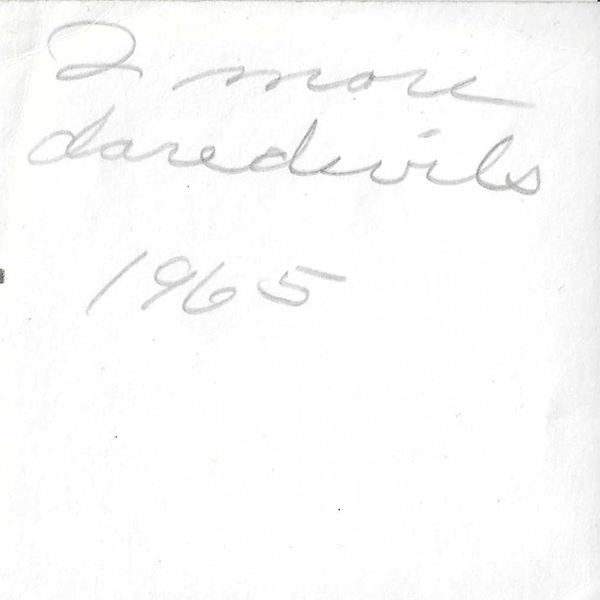 2 more
daredevils
1965